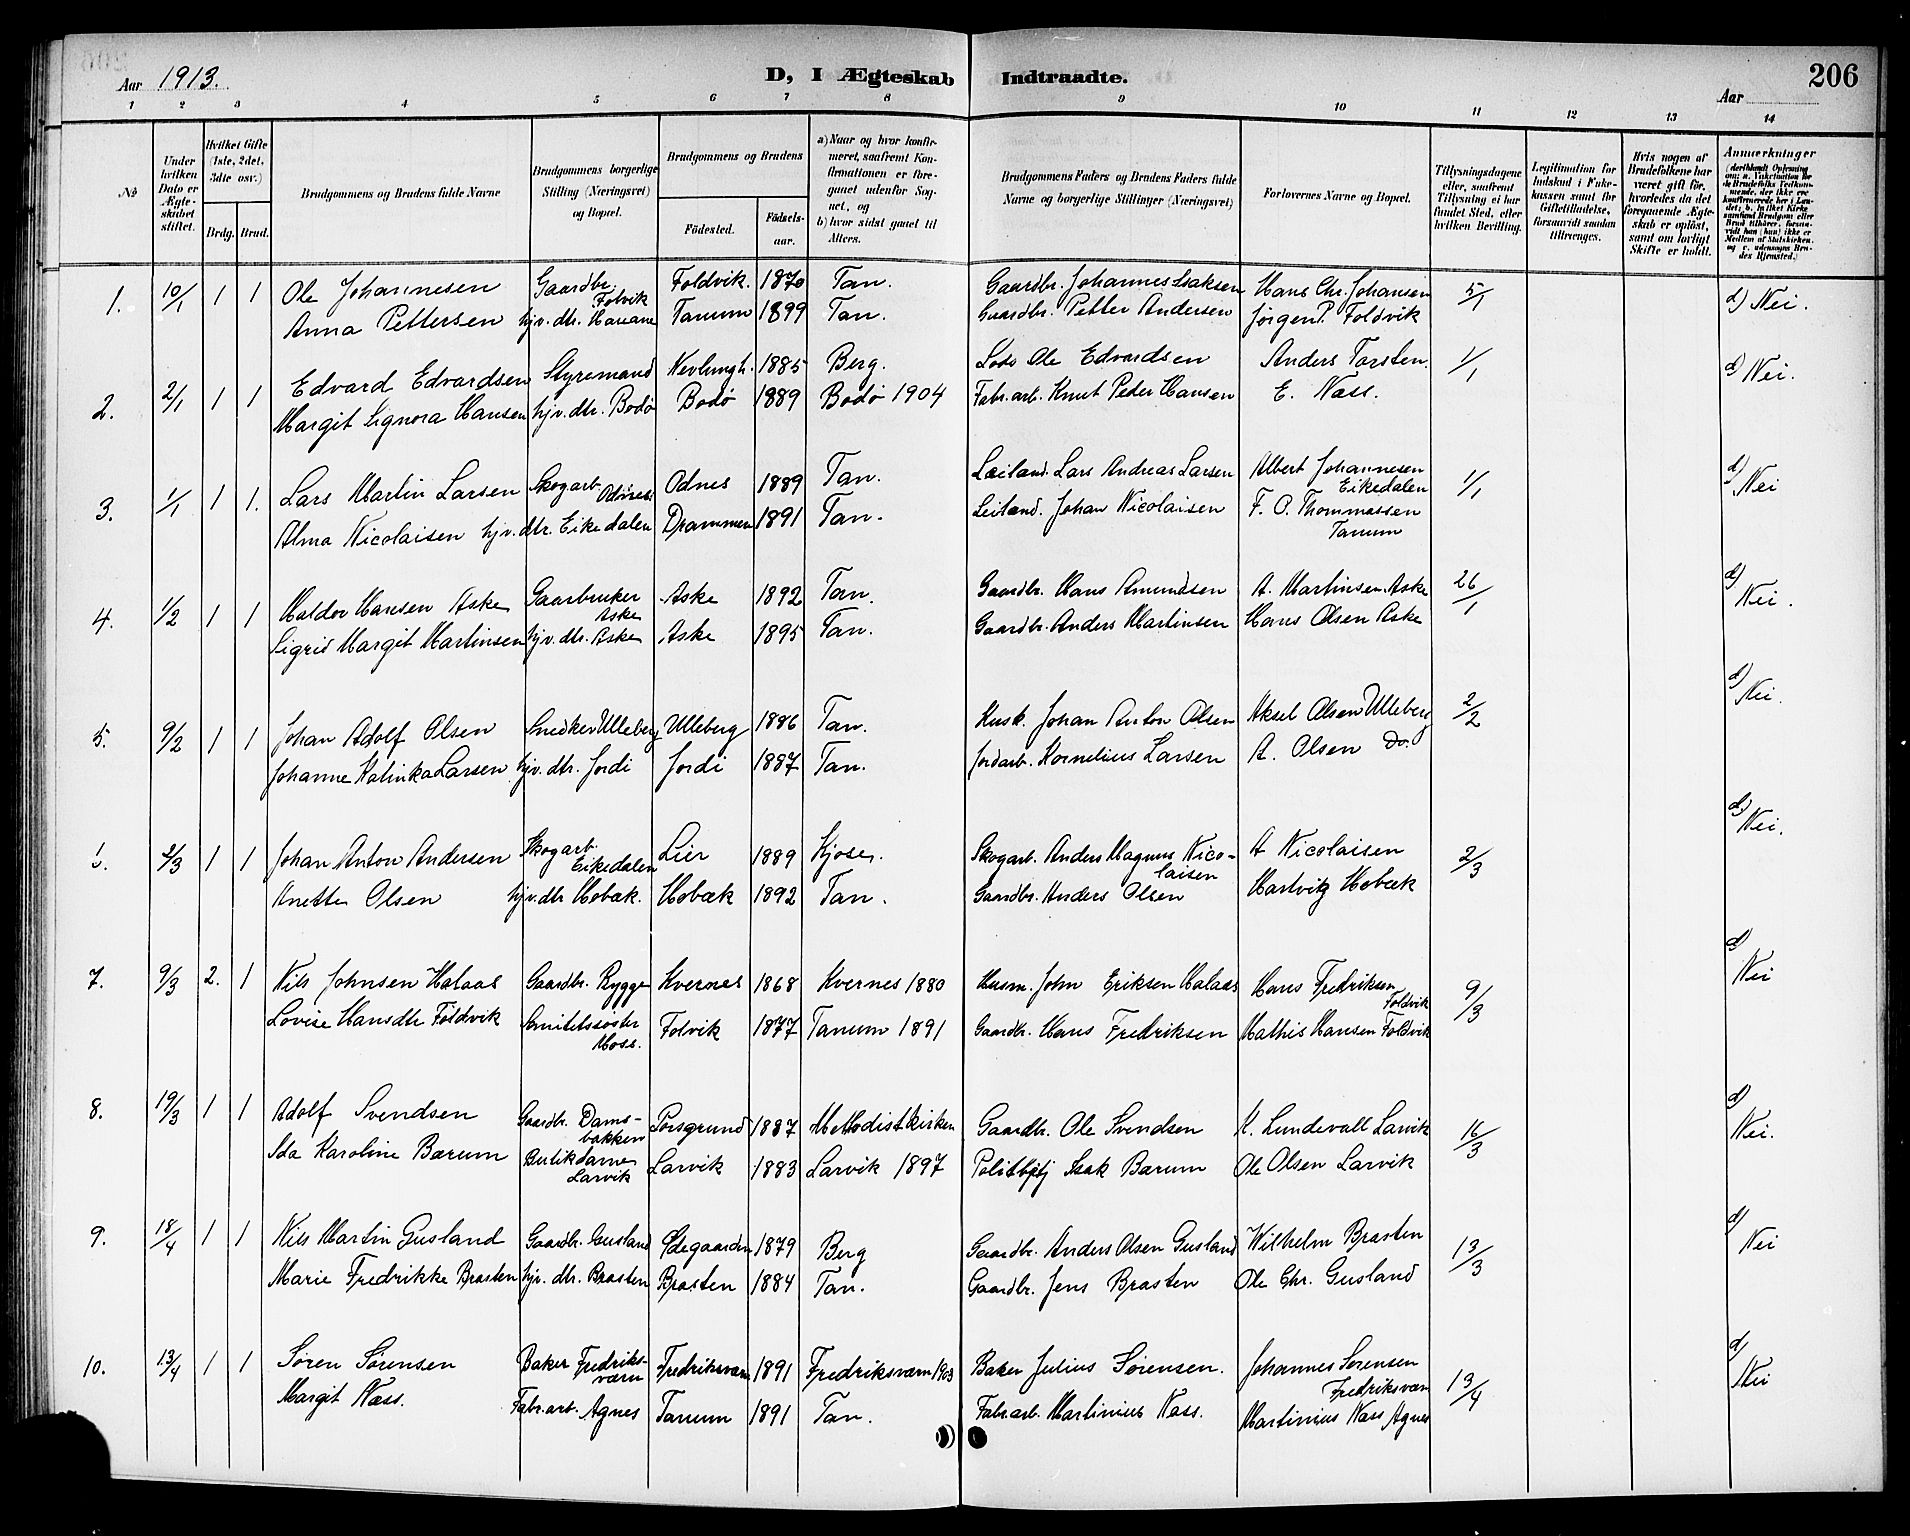 Aar 1913. D, I Ægteskab Indtraadte. Aar 206
1 2 3 4 5 6 7 8 9 10 11 12 13 14
No
Under hvilken Dato er Ægteskabet stiftet.
Hvilket Gifte (1ste, 2det, 3die osv.)
Brdg. Brud.
Brudgommens og Brudens fulde Navne
Brudgommens borgerlige Stilling (Næringsvei) og Bopæl.
Brudgommens og Brudens
Fødested. Fødselsaar.
a) Naar og hvor konfirmeret, saafremt Konfirmationen er foregaaet udenfor Sognet, og
b) hvor sidst gaaet til Alters.
Brudgommens Faders og Brudens Faders fulde Navne og borgerlige Stillinger (Næringsvei)
Forlovernes Navne og Bopæl.
Tillysningsdagene eller, saafremt Tillysning ei har fundet Sted, efter hvilken Bevilling.
Legitimation for Indskud i Enkekassen samt for Giftetilladelse, forsaavidt saadan tiltrænges.
Hvis nogen af Brudefolkene har været gift før, hvorledes da det foregaaende Ægteskab er opløst, samt om lovligt Skifte er holdt.
Anmærkninger
1. 10/1 1 1 Ole Johannesen Gaardbr. Folvik Foldvik. 1870 Tan. Gaardbr. Johannes Isaksen Hans Chr. Johansen 5/1 d) Nei.
Anna Pettersen hjv. dtr. Haveane Tanum 1899 Tan. Gaardbr. Petter Andersen Jørgen P. Foldvik
2. 2/1 1 1 Edvard Edvardsen Styremand Nevlungh. 1885 Berg. Lods Ole Edvardsen Anders Torsten. 1/1 d) Nei.
Margit Signora Hansen hjv. dtr. Bodø Bodø 1889 Bodø 1904 Fabr.arb. Knut Peder Hansen E. Nass.
3. 1/1 1 1. Lars Martin Larsen Skogarb. Odnes. Odnes 1889 Tan. Leiland. Lars Andreas Larsen Albert Johannesen Eikedalen 1/1 d) Nei
Alma Nicolaisen hjv. dtr. Eikedalen Drammen 1891 Tan. Leiland. Johan Nicolaisen F. O. Thommassen Tanum
4. 1/2 1 1 Haldor Hansen Aske Gaarbruker Aske Aske 1892 Tan. Gaardbr. Hans Amundsen A. Martinsen. Aske 26/1 d) Nei.
Sigrid Margit Martinsen hjv. dtr. Aske Aske 1895 Tan. Gaardbr. Anders Martinsen Hans Olsen Aske
5. 9/2 1 1 Johan Adolf Olsen Snedker Ulleberg Ulleberg 1886 Tan. Husk. Johan Anton Olsen Aksel Olsen Ulleberg 2/2 d) Nei.
Johanne Kalinka Larsen hjv. dtr. Jordi Jordi 1887 Tan. Jordarb. Kornelius Larsen A. Olsen Do.
2/3 1 1 Johan Anton Andersen Skogarb. Eikedalen Lier 1889 Kjose. Skogarb. Anders Magnus Nicolaisen A Nicolaisen 2/3 d) Nei.
Anette Olsen hjv. dtr Hobæk. Hobæk 1892 Tan. Gaardbr. Anders Olsen Hartvig Hobæk
7. 9/3 2. 1 Nils Johnsen Halaas Gaardbr. Rygge Kvernes 1868 Kvernes 1880 Husm. John Eriksen Halaas Hans Fredriksen Foldvik 9/3 d) Nei
Lovise Hansdtr Foldvik Sanitetssøster Moss. Folvik 1877 Tanum 1891 Gaardbr. Hans Fredriksen Mathis Hansen Foldvik
8. 19/3 1 1 Adolf Svendsen Gaardbr. Damsbakken Porsgrund 1887 Methodistkirken Gaardbr. Ole Svendsen K. Lundevall Larvik 16/3 d) Nei.
Ida Karoline Bærum Butikdame Larvik Larvik 1883 Larvik 1897 Isak Bærum Ole Olsen Larvik
9. 18/4 1 1 Nils Martin Gusland Gaardbr. Gusland Ødegaarden 1879 Berg Gaardbr. Anders Olsen Gusland Wilhelm Brasten 13/3 d) Nei
Marie Fredrikke Brasten hjv. dtr. Brasten Brasten 1884 Tan. Gaardbr. Jens Brasten Ole Chr. Gusland
10. 13/4 1 1 Søren Sørensen Baker Fredriksværn Fredriksværn 1891 Fredriksværn 1903 Baker Julius Sørensen. Johannes Sørensen Fredriksværn 13/4 d) Nei
Margit Nass. Fabr.arb. Agnes Tanum 1891 Tan. Fabr.arb. Martinius Nass. Martinius Nass Agnes